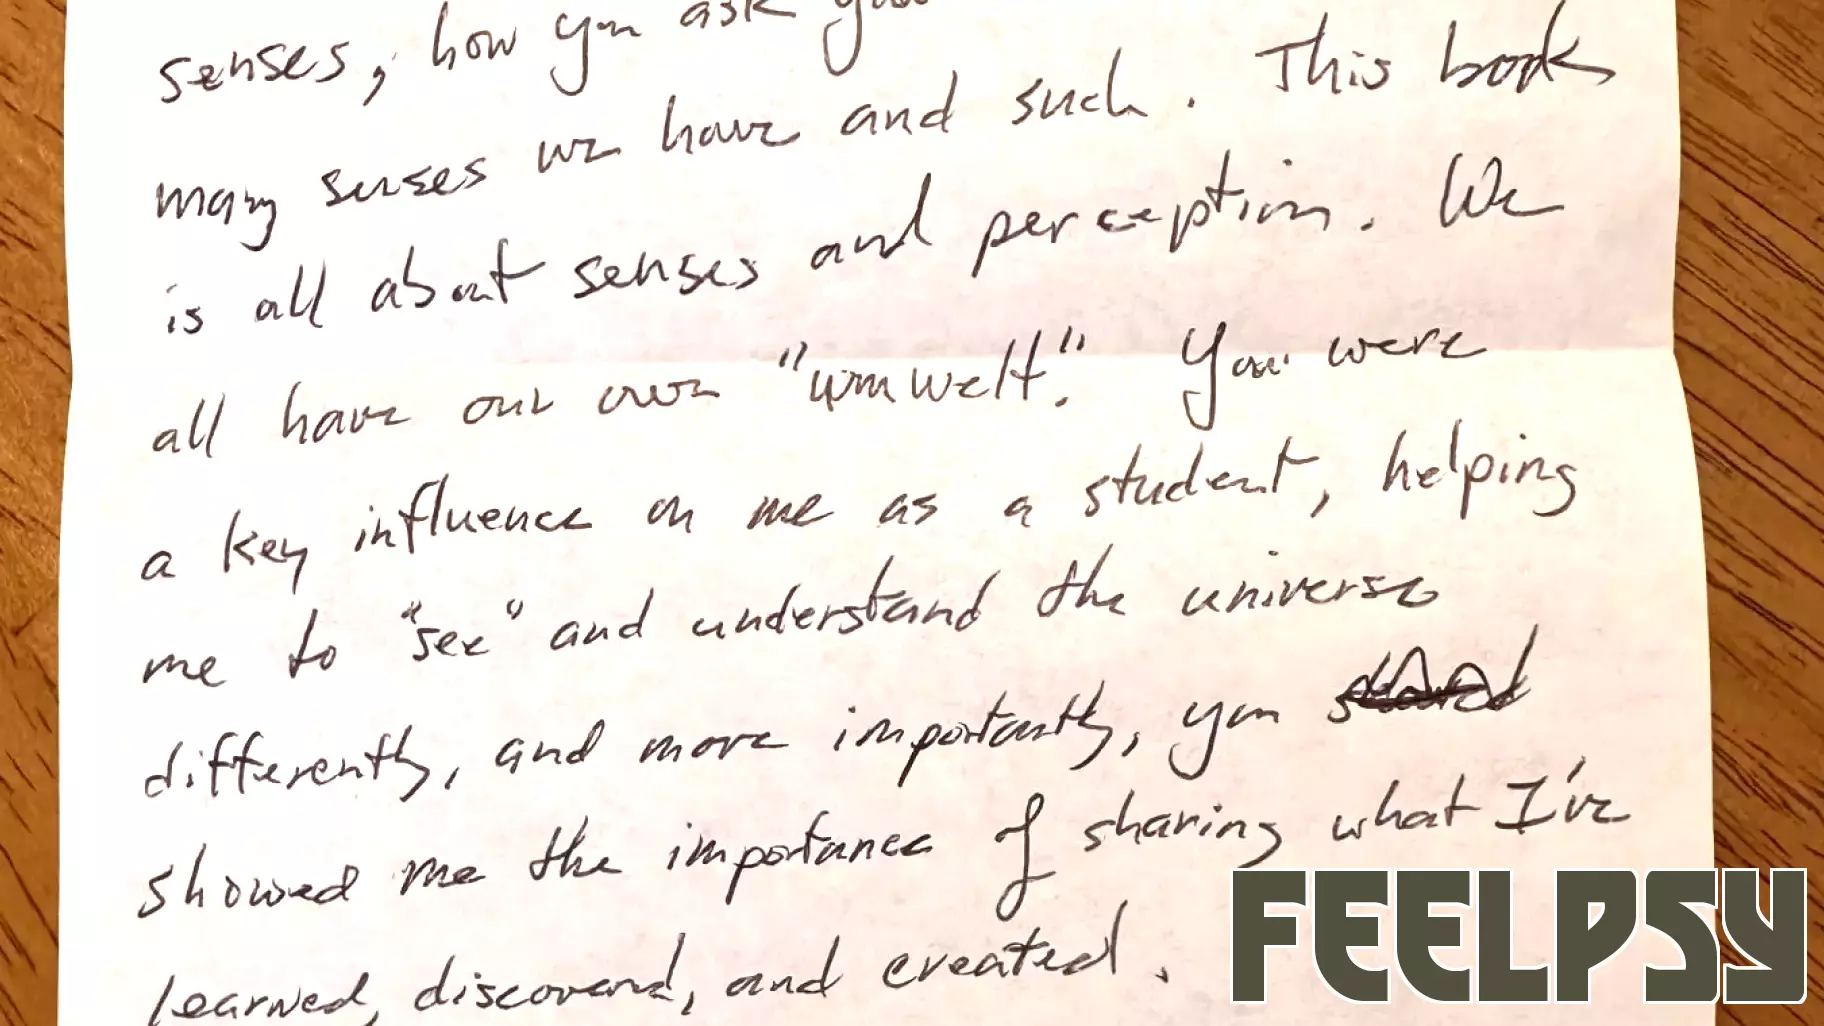 senses, how you ask you
many senses we have and such. This book
is all about senses and perception. We
all have our own "umwelt." You were
a key influence on me as a student, helping
me to "see" and understand the universe
differently, and more importantly, you
showed me the importance of sharing what I've
learned, discovered, and created.
FEELPSY